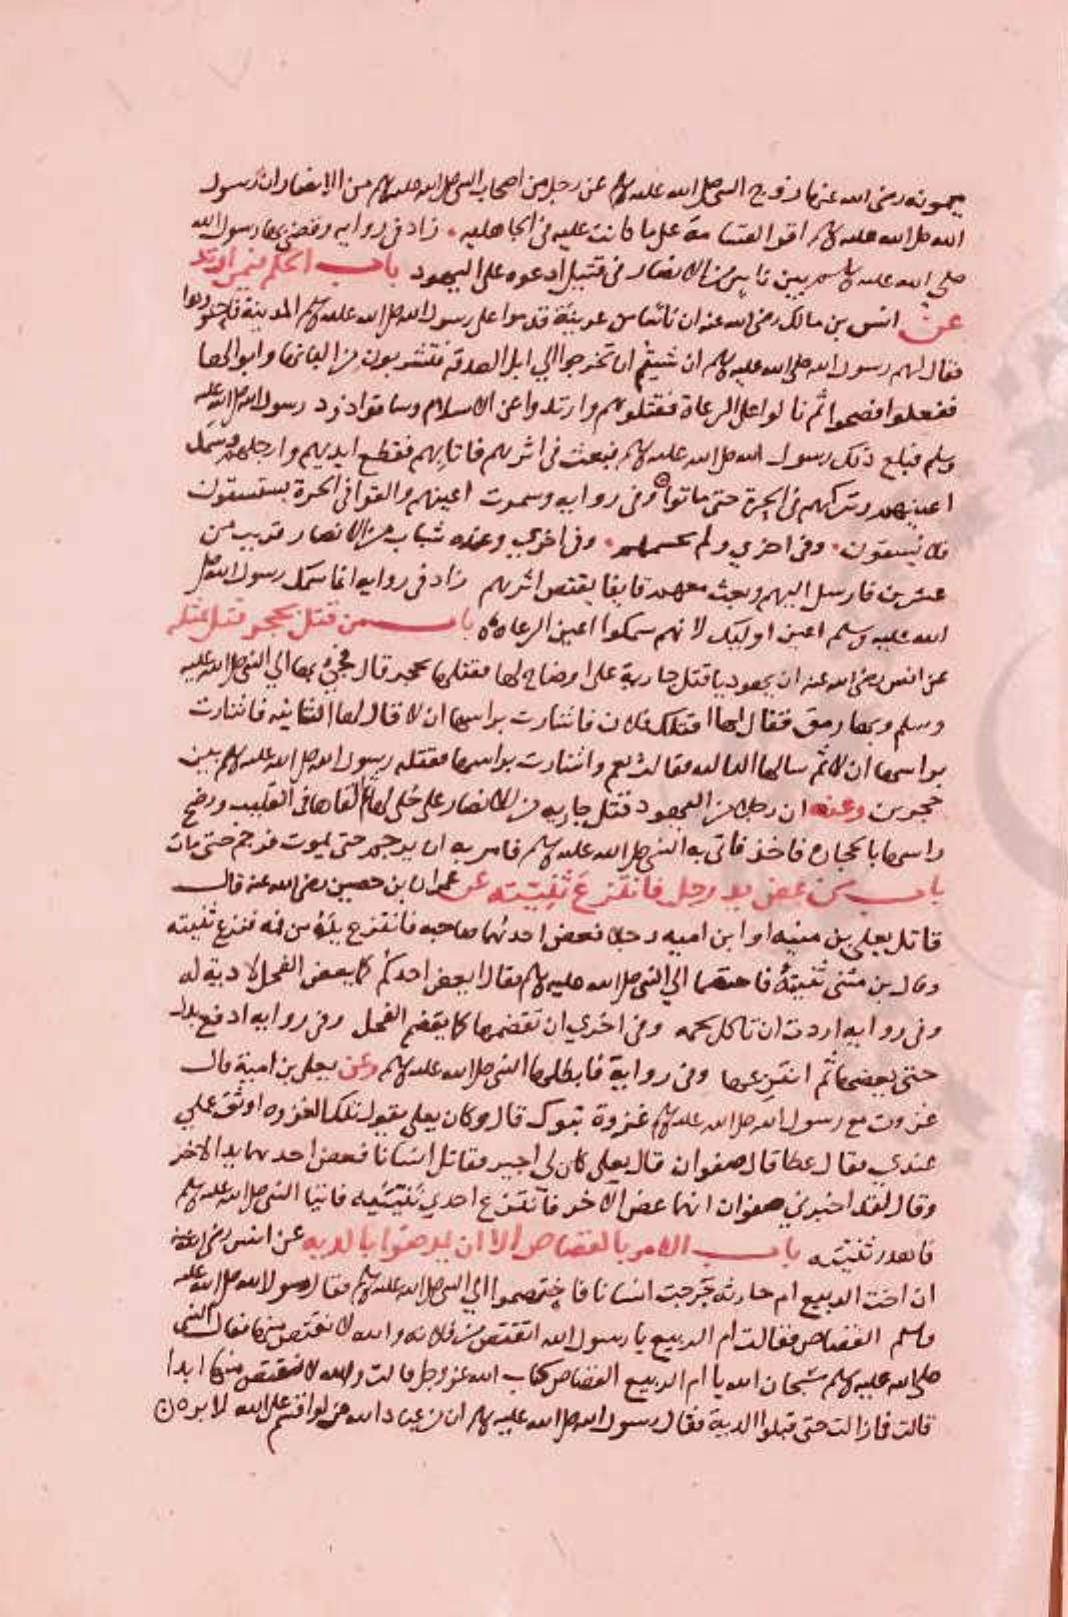 ميمونه رضى الله عنها زوج النبي صلى الله عليه وسلم عن رجل من اصحاب النبي صلى الله عليه وسلم من الانصار ان رسول
الله صلى الله عليه وسلم اقر القسامة على ما كانت عليه في الجاهليه . زاد في روايه وقضى بها رسول الله
صلى الله عليه وسلم بين ناس من الانصار في قتيل ادعوه على اليهود باب الحكم فيمن ارتد
عن انس بن مالك رضى الله عنه ان ناسا من عرينة قدموا على رسول الله صلى الله عليه وسلم المدينة فاجتووها
فقال لهم رسول الله صلى الله عليه وسلم ان شيتم ان تخرجوا الي ابل الصدقة فتشربون من البانها وابوالها
ففعلوا فصحوا ثم مالوا على الرعاة فقتلوهم وارتدوا عن الاسلام وساقوا ذود رسول الله صلى الله عليه
وسلم فبلغ ذلك رسول الله صلى الله عليه وسلم فبعث في اثرهم فاتا بهم فقطع ايديهم وارجلهم وسمل
اعينهم وتركهم في الحرة حتى ماتوا وفي روايه وسمرت اعينهم والقوا في الحرة يستسقون
فلا يسقون . وفي اخري ولم يحسمهم . وفي اخري وعنده شباب من الانصار قريب من
عشرين فارسل اليهم وبعث معهم قايفا يقتص اثرهم زاد في روايه انما سمل رسول الله صلى
الله عليه وسلم اعين اوليك لانهم سملوا اعين الرعاه باب من قتل بحجر قتل بمثله
عن انس رضى الله عنه ان يهوديا قتل جارية على اوضاح لها فقتلها بحجر قال فجيء بها الي النبي صلى الله عليه
وسلم وبها رمق فقال لها اقتلك فلان فاشارت براسها ان لا قال لها الثانيه فاشارت
براسها ان لا ثم سالها الثالثه فقالت نعم واشارت براسها فقتله رسول الله صلى الله عليه وسلم بين
حجرين وعنه ان رجلا من اليهود قتل جاريه من الانصار على حلي لها ثم القاها في القليب ورضخ
راسها بالحجاره فاخذ فاتي به النبي صلى الله عليه وسلم فامر به ان يرجم حتى يموت فرجم حتى مات
باب من عض يد رجل فانتزع ثنيته عن عمران بن حصين رضى الله عنه قال
قاتل يعلى بن منيه او ابن اميه رجلا فعض احدهما صاحبه فانتزع يده من فمه فنزع ثنيته
وقال بن مثنى ثنيتيه فاختصما الي النبي صلى الله عليه وسلم فقال ايعض احدكم كما يعض الفحل لا دية له
وفي روايه اردت ان تاكل لحمه وفي اخري ان تقضمها كما يقضم الفحل وفي روايه ادفع يدك
حتى يعضها ثم انتزعها وفي رواية فابطلها النبي صلى الله عليه وسلم وعن يعلى بن امية قال
غزوت مع رسول الله صلى الله عليه وسلم غزوة تبوك قال وكان يعلى يقول تلك الغزوه اوثق عملي
عندي فقال عطا قال صفوان قال يعلى كان لي اجير فقاتل انسانا فعض احدهما يد الاخر
وقال لقد اخبرني صفوان ايهما عض الاخر فانتزع احدي ثنيتيه فاتيا النبي صلى الله عليه وسلم
فاهدر ثنيته باب الامر بالقصاص الا ان يرضوا بالديه عن انس رضى الله عنه
ان اخت الربيع ام حارثه جرحت انسانا فاختصموا الي النبي صلى الله عليه وسلم فقال رسول الله صلى الله عليه
وسلم القصاص فقالت ام الربيع يا رسول الله اتقتص من فلانه والله لا تقتص منها فقال النبي
صلى الله عليه وسلم سبحان الله يا ام الربيع القصاص كتاب الله عز وجل قالت والله لا تقتص منها ابدا
قالت فما زالت حتى قبلوا الدية فقال رسول الله صلى الله عليه وسلم ان من عباد الله من لو اقسم على الله لابره